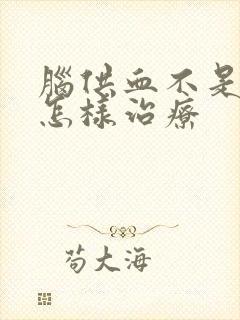 腦供血不是
怎樣治療
苟大海